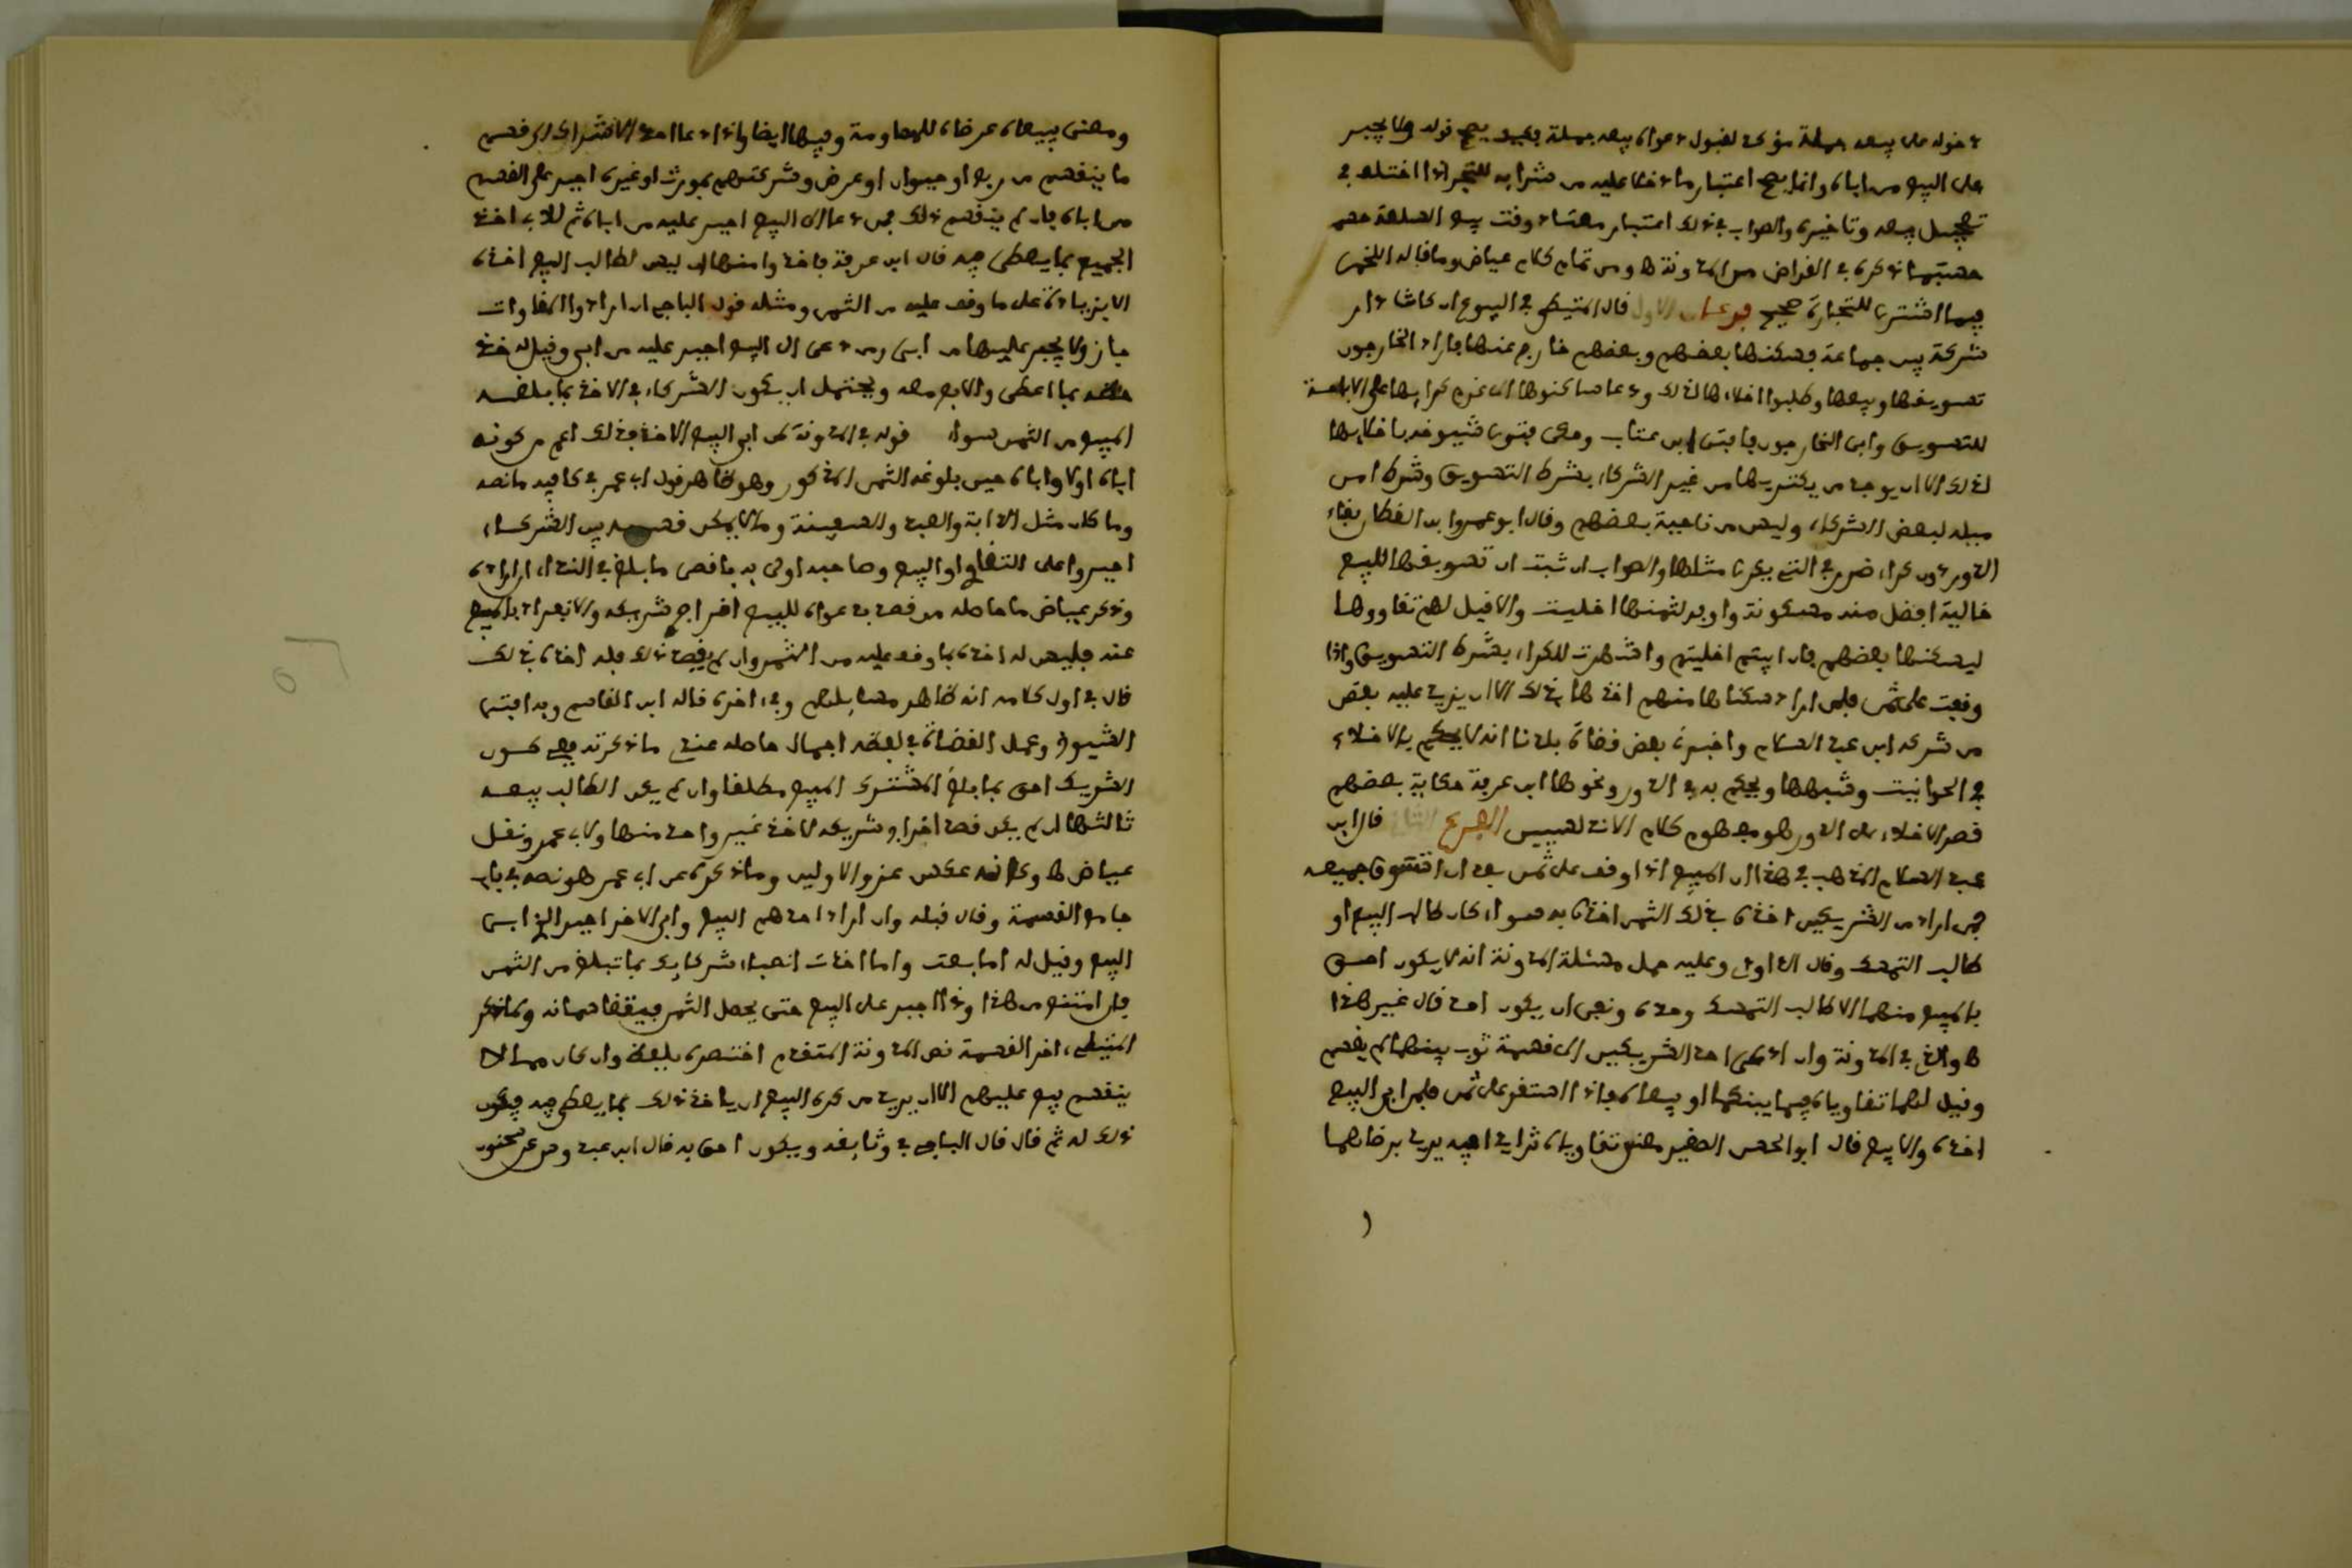 دخوله على بيعه جملة مؤكد لقبول دعواه بيعه جملة فكيف يصح قوله ولا يجبر
على البيع من اباه وانما يصح اعتبار ما دخلا عليه من شرايه للتجر اذا اختلف في
تعجيل بيعه وتاخيره والصواب في ذلك اعتبار معتاد وقت بيع السلعة
حسبما ذكره في القراض من المدونة ومن تمام كلام عياض وما قاله اللخمي
فيما اشتري للتجارة صحيح فرعان الاول قال المتيطي في البيوع ان كانت دار
شركة بين جماعة فسكنها بعضهم وبعضهم خارج عنها فاراد الخارجون
تسويقها وبيعها وطلبوا اخلاءها لذلك ودعا ساكنوها الى غرم كرايها على الاباحة
للتسويق وابى الخارجون فافتى ابن عتاب وحكى فتوى شيوخه باخلايها
لذلك الا ان يوجد من يكتريها من غير الشركاء بشرط التسويق وشرط امن
ميله لبعض الشركاء وليس من ناحية بعضهم وقال ابو عمر وابن القطان بقاء
الدور دون كراء ضرر في التي يكرى مثلها والصواب ان ثبت ان تسويقها للبيع
خالية افضل منه مسكونة واوفر لثمنها اخليت والا قيل لهم تقاووها
ليسكنها بعضهم فان ابيتم اخليتم واشهرت للكراء بشرط التسويق واذا
وقفت على ثمن فلمن اراد سكناها منهم اخذها بذلك الا ان يزيد عليه بعض
من شركه ابن عبد السلام واخبرني بعض قضاة بلدنا انه لا يحكم بالاخلاء
في الحوانيت وشبهها ويحكم به في الدور ونحوها ابن عرفة حكاية بعضهم
قصر الاخلاء على الدور هو مفهوم كلام الاندلسيين الفرع الثاني قال ابن
عبد السلام المذهب في هذا ان المبيع اذا وقف على ثمن بعد ان تسوق جميعه
فمن اراد من الشريكين اخذه بذلك الثمن اخذه به سواء كان طالب البيع او
طالب التمسك وقال الداودي وعليه حمل مسئلة المدونة انه لا يكون احق
بالمبيع منهما الا طالب التمسك وحده ونفى ان يكون احد قال غير هذا
والذي في المدونة وان دعى احد الشريكين الى قسمة ثوب بينهما لم يقسم
وقيل لهما تقاوياه فيما بينكما او بيعاه فاذا استقر على ثمن فلمن ابى البيع
اخذه والا بيع قال ابو الحسن الصغير معنى تقاوياه تزايدا فيه يريد برضاهما
ومعنى بيعاه عرضاه للمساومة وفيها ايضا واذا دعا احد الاشراك الى قسم
ما ينقسم من ربع او حيوان او عرض وشركتهم بمورث او غيره اجبر على القسم
من اباه فان لم ينقسم ذلك فمن دعا الى البيع اجبر عليه من اباه ثم للابي اخذ
الجميع بما يعطى فيه قال ابن عرفة فاخذوا منها ان ليس لطالب البيع اخذه
الا بزيادة على ما وقف عليه من الثمن ومثله قول الباجي ان ارادوا المقاوات
جاز ولا يجبر عليها من ابى ومن دعى الى البيع اجبر عليه من ابى وقيل له خذ
حقه بما اعطى والا بع معه ويحتمل ان يكون الشركاء في الاخذ بما بلغه
المبيع من الثمن سواء قوله في المدونة لمن ابى البيع الاخذ بذلك اعم من كونه
اباه اولا واباه حين بلوغه الثمن المذكور وهو ظاهر قول ابي عمر في كافيه ما نصه
وما كان مثل الدابة والعبد والسفينة وما لا يمكن قسمه بين الشركاء
اجبروا على التقاوي او البيع وصاحبه اولى به باقصى ما بلغ في النداء ان اراده
وذكر عياض ما حاصله من قصد بدعواه للبيع اخراج شريكه والانفراد بالمبيع
عنه فليس له اخذه بما وقف عليه من الثمن وان لم يقصد ذلك فله اخذه بذلك
قال في اول كلامه انه ظاهر مسايلهم وفي اخره قاله ابن القاسم وبه افتى
الشيوخ وعمل القضاة في لفظه اجمال حاصله عندي ما ذكرته ففي كون
الشريك احق بما بلغ المشتري المبيع مطلقا وان لم يكن الطالب بيعه
ثالثها ان لم يكن قصد اخراج شريكه لاخذ غير واحد منها ولابي عمر ونقل
عياض وكانه عكس عزو الاولين وما ذكره عن ابي عمر هو نصه في باب
جامع القسمة وقال قبله وان اراد احدهم البيع وابى الاخر اجبر الذي ابى
البيع وقيل له اما بعت واما اخذت انصباء شركايك بما تبلغ من الثمن
فان امتنع من هذا وذا اجبر على البيع حتى يحصل الثمن فيقتسمانه وما ذكر
المتيطي اخر القسمة نص المدونة المتقدم اختصره بلفظ وان كان مما لا
ينقسم بيع عليهم الا ان يريد من كره البيع ان ياخذ ذلك بما يعطى فيه فيكون
ذلك له ثم قال قال الباجي في وثايقه ويكون احق به قال ابن عبدوس عن سحنون